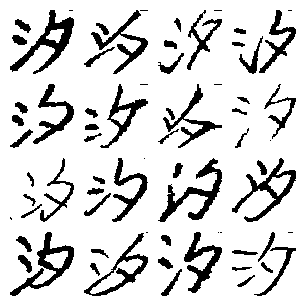 汐汐汐汐
汐汐汐汐
汐汐汐汐
汐汐汐汐